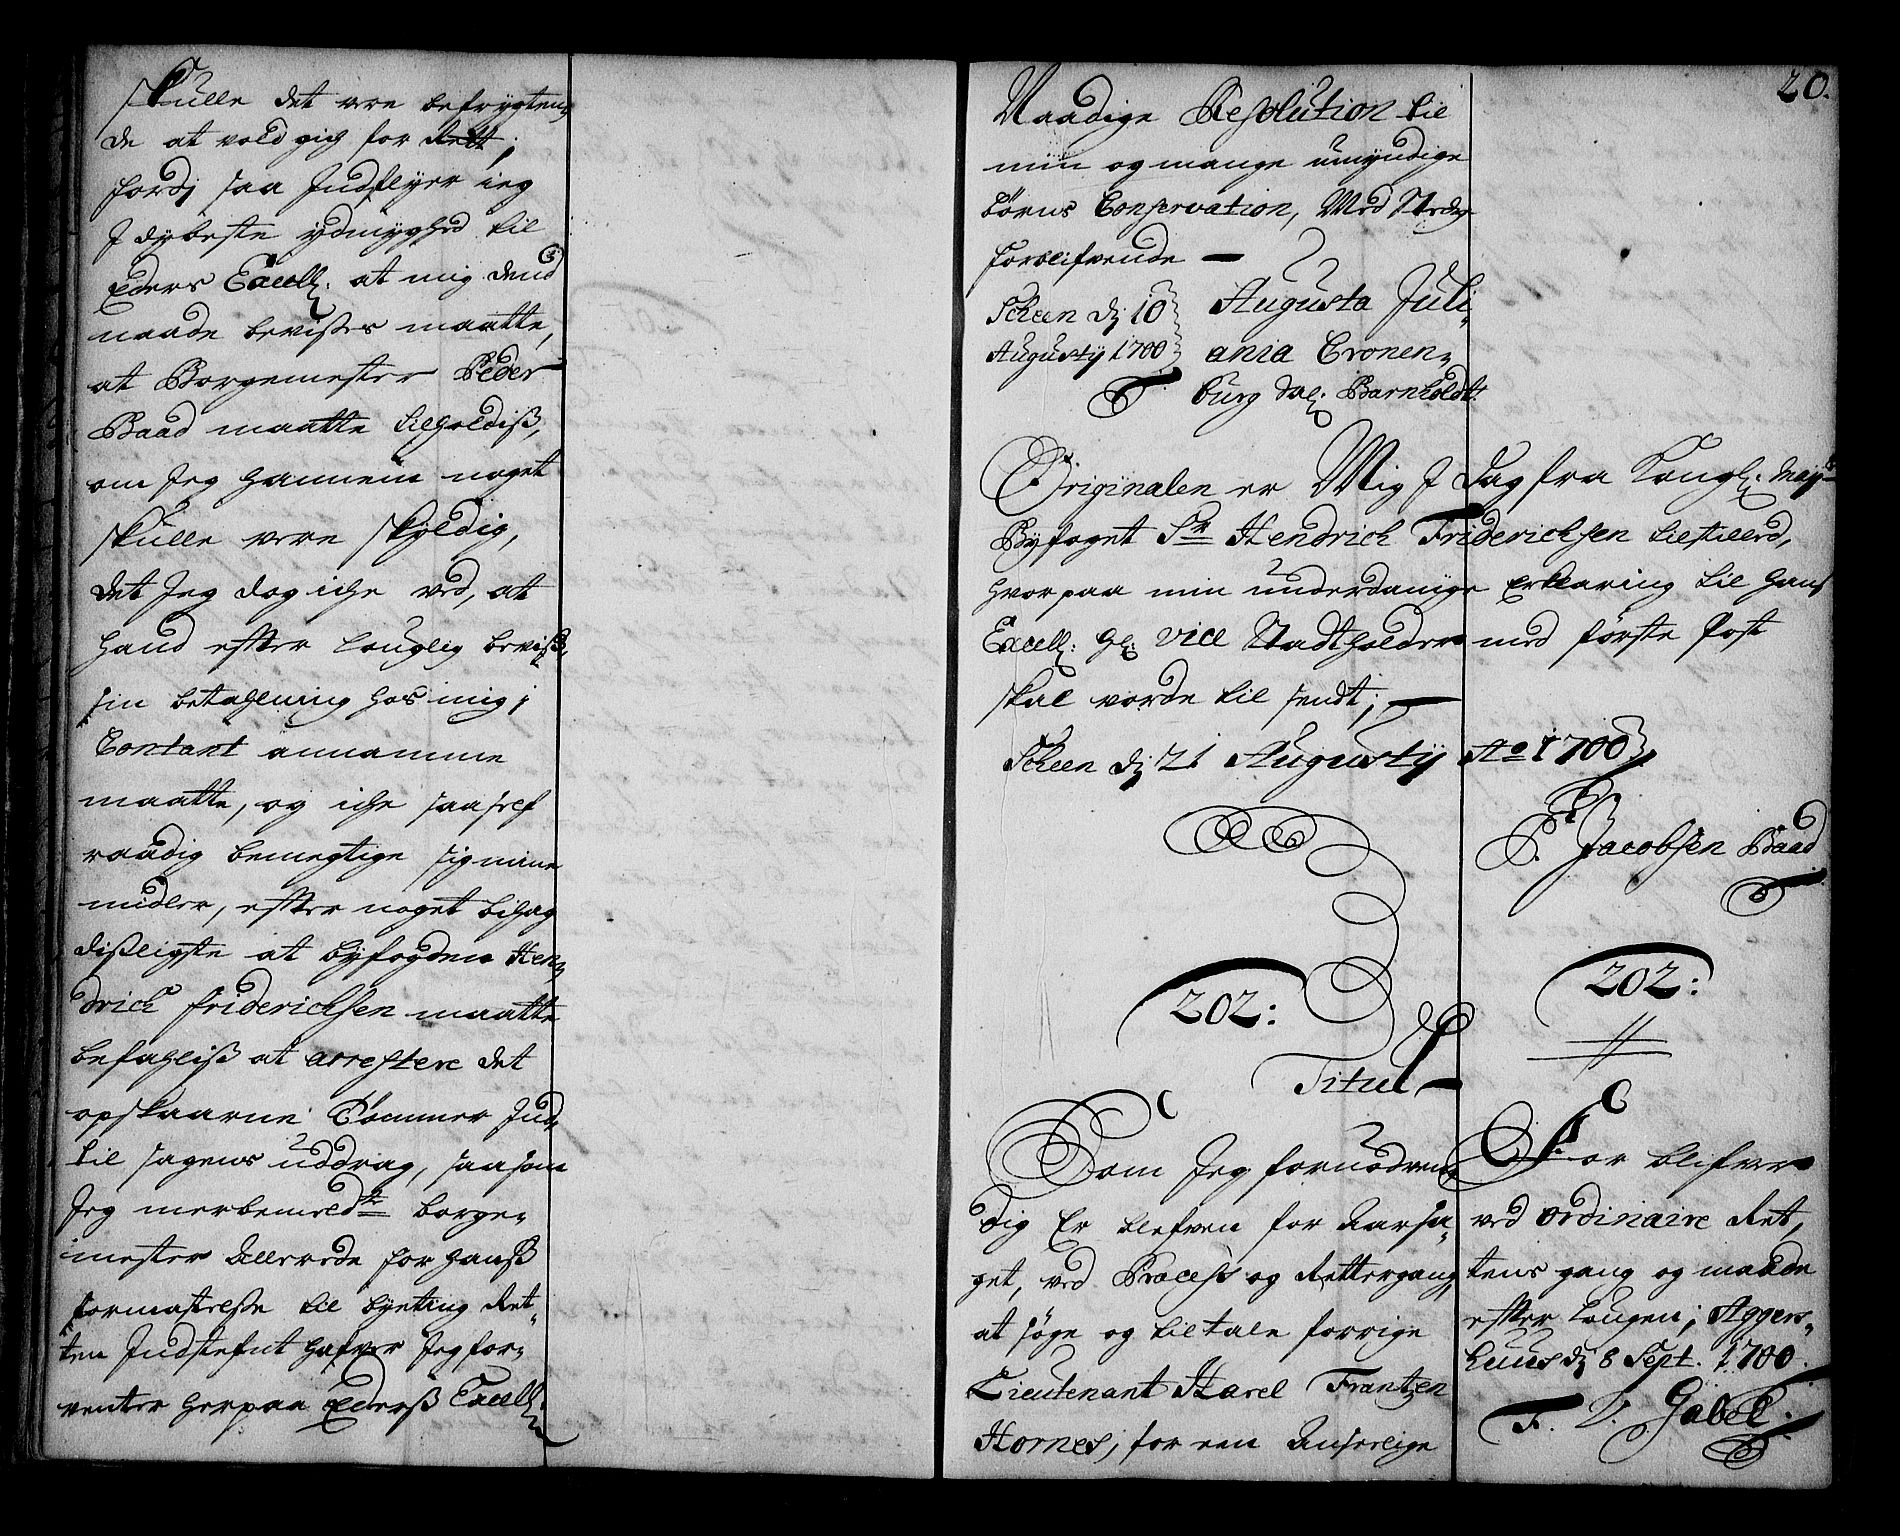 Skulle det vere befrygten,
de at vold gich for Rett,
fordj saa Indflyer ieg
J dybeste ydmyghed til
Eders Excell: at mig dend
naade beviises maatte,
at Borgemester Peder
Baad maatte tilholdiß,
om Jeg hannem noget
skulle vere skyldig,
det Jeg dog iche ved, at
hand efter louglig beviß,
sin betahlning hos mig;
Contant annamme
maatte, og iche saa self
raadig bemegtige sig mine
midler, efter noget behag
disligste at byfogden Hen,
drich friderichsen maatte
befahliß at arrestere det
opskaarne Tømmer Ind,
til sagens uddrag, saasom
Jeg merbemeldte borge,
mester Allerede for hanß
formastelße til byeting Ret,
ten Indstefnt hafver Jeg for,
venter herpaa Ederß Excell:
20.
Naadige Resolution til
min og mange umyndige
børns Conservation, Med Stedse
forblifvende —
Scheen dj 10
Augustij 1700
Augusta Juli,
ania Cronen,
burg Sal: Barnholdt
Originalen er Mig J dag fra Kongl: Mayts
Byfoget Sr Hendrich Friderichsen tilstilled,
hvorpaa min underdanige Erklaring til hans
Excell: hr: vice Stadtholder med første post
skal vorde til sendt; —
Scheen dj 21 Augustij Ao 1700
P. Jacobsen Baad
202:
Titul
Som Jeg fornødven,
dig Er blefven for Aarsa,
get, ved Process og Rettergang,
at søge og tiltale forrige
Lieutenant Karel Frantzen
Hornes, for een Anseelige
202:
For blifver
ved ordinaire Ret,
tens gang og maade
efter Lougen; Aggers,
huus dj 8 Sept. 1700.
F. V. Gabel.